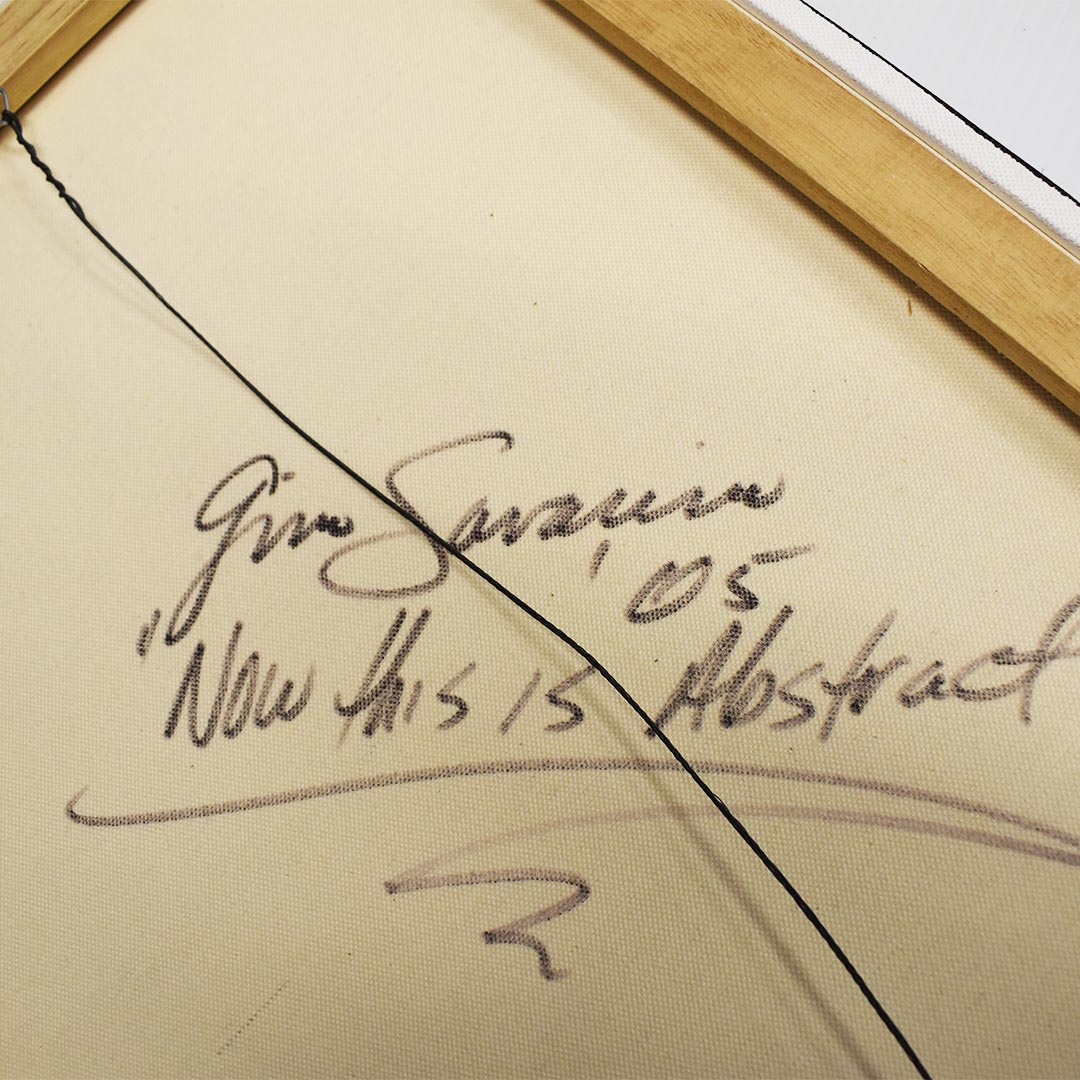 Gino Savarino
'05
"Now this is Abstract